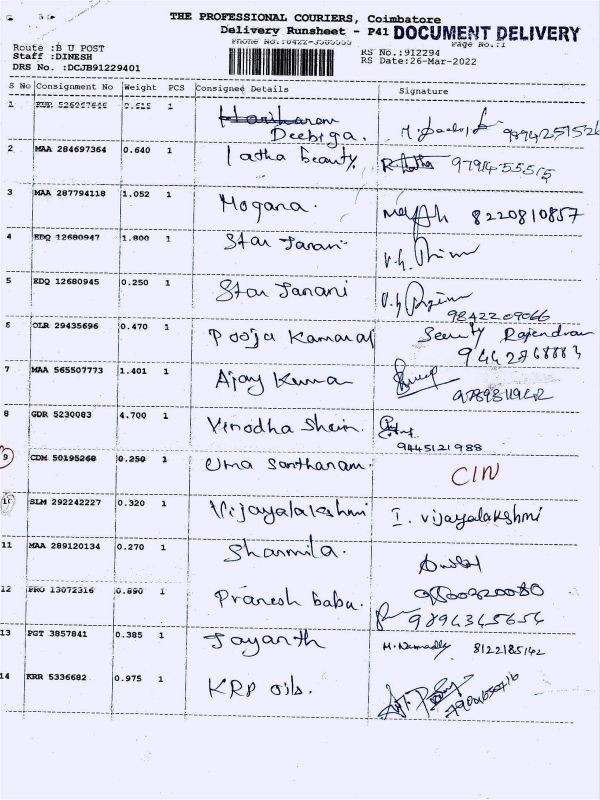 THE PROFESSIONAL COURIERS, Coimbatore
Delivery Runsheet - P41 DOCUMENT DELIVERY
Phone No.:0422-3565555 Page No.:1
Route :B U POST RS No.:912294
Staff :DINESH RS Date:26-Mar-2022
DRS No. :DCJB91229401
S No Consignment No Weight PCS Consignee Details Signature
1 0.615 1 Hariharan
Deebiga.
2 MAA 284697364 0.640 1 latha beauty. 9791455515
3 MAA 287794118 1.052 1 Mogana. 8220810857
4 EDQ 12680947 1.800 1 Star Janani
5 EDQ 12680945 0.250 1 Star Janani
9842209066
6 OLR 29435696 0.470 1 Pooja Kamaraj Security Rajendran
9442768883
7 MAA 565507773 1.401 1 Ajay Kumar
8 GDR 5230083 4.700 1 Vinodha Shein.
9445121988
9 CDM 50195268 0.250 1 Uma Santhanam. CIN
10 SLM 292242227 0.320 1 Vijayalakshmi I. Vijayalakshmi
11 MAA 289120134 0.270 1 Sharmila.
12 PRO 13072316 0.890 1 Pranesh babu.
9894345654
13 PGT 3857841 0.385 1 Jayanth 8122185142
14 KRR 5336682 0.975 1 KRP oils.